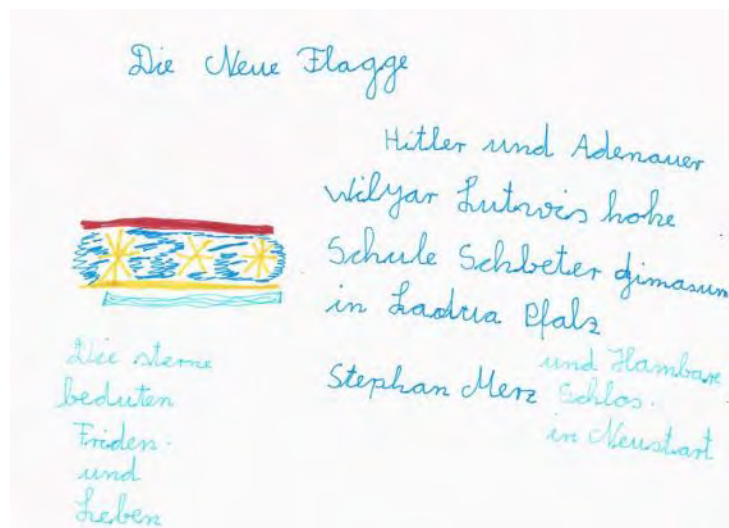 Die Neue Flagge
Hitler und Adenauer
Wilyar Lutwis hohe
Schule Schbeter gimasum
in Ladua Pfalz
Stephan Merz
und Hambare
Schlos.
in Neustart
Die sterne
beduten
Friden.
und
Leben